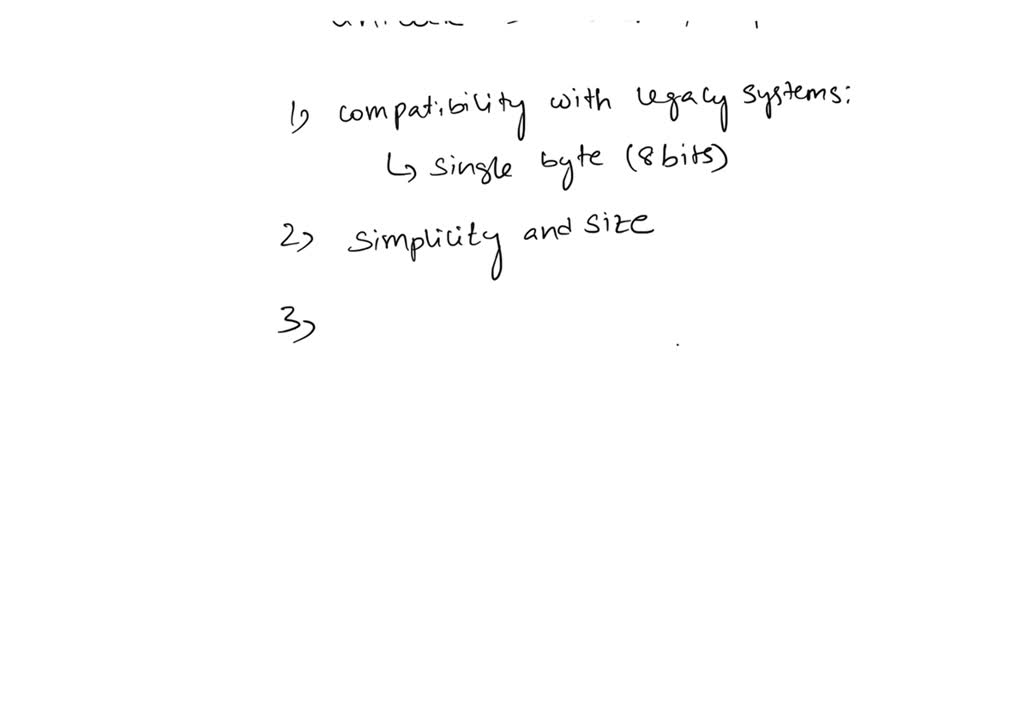 1) compatibility with legacy systems:
↳ single byte (8 bits)
2) simplicity and size
3)